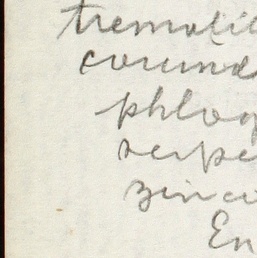 tremolit
corund
phlog
serpe
zinc
En